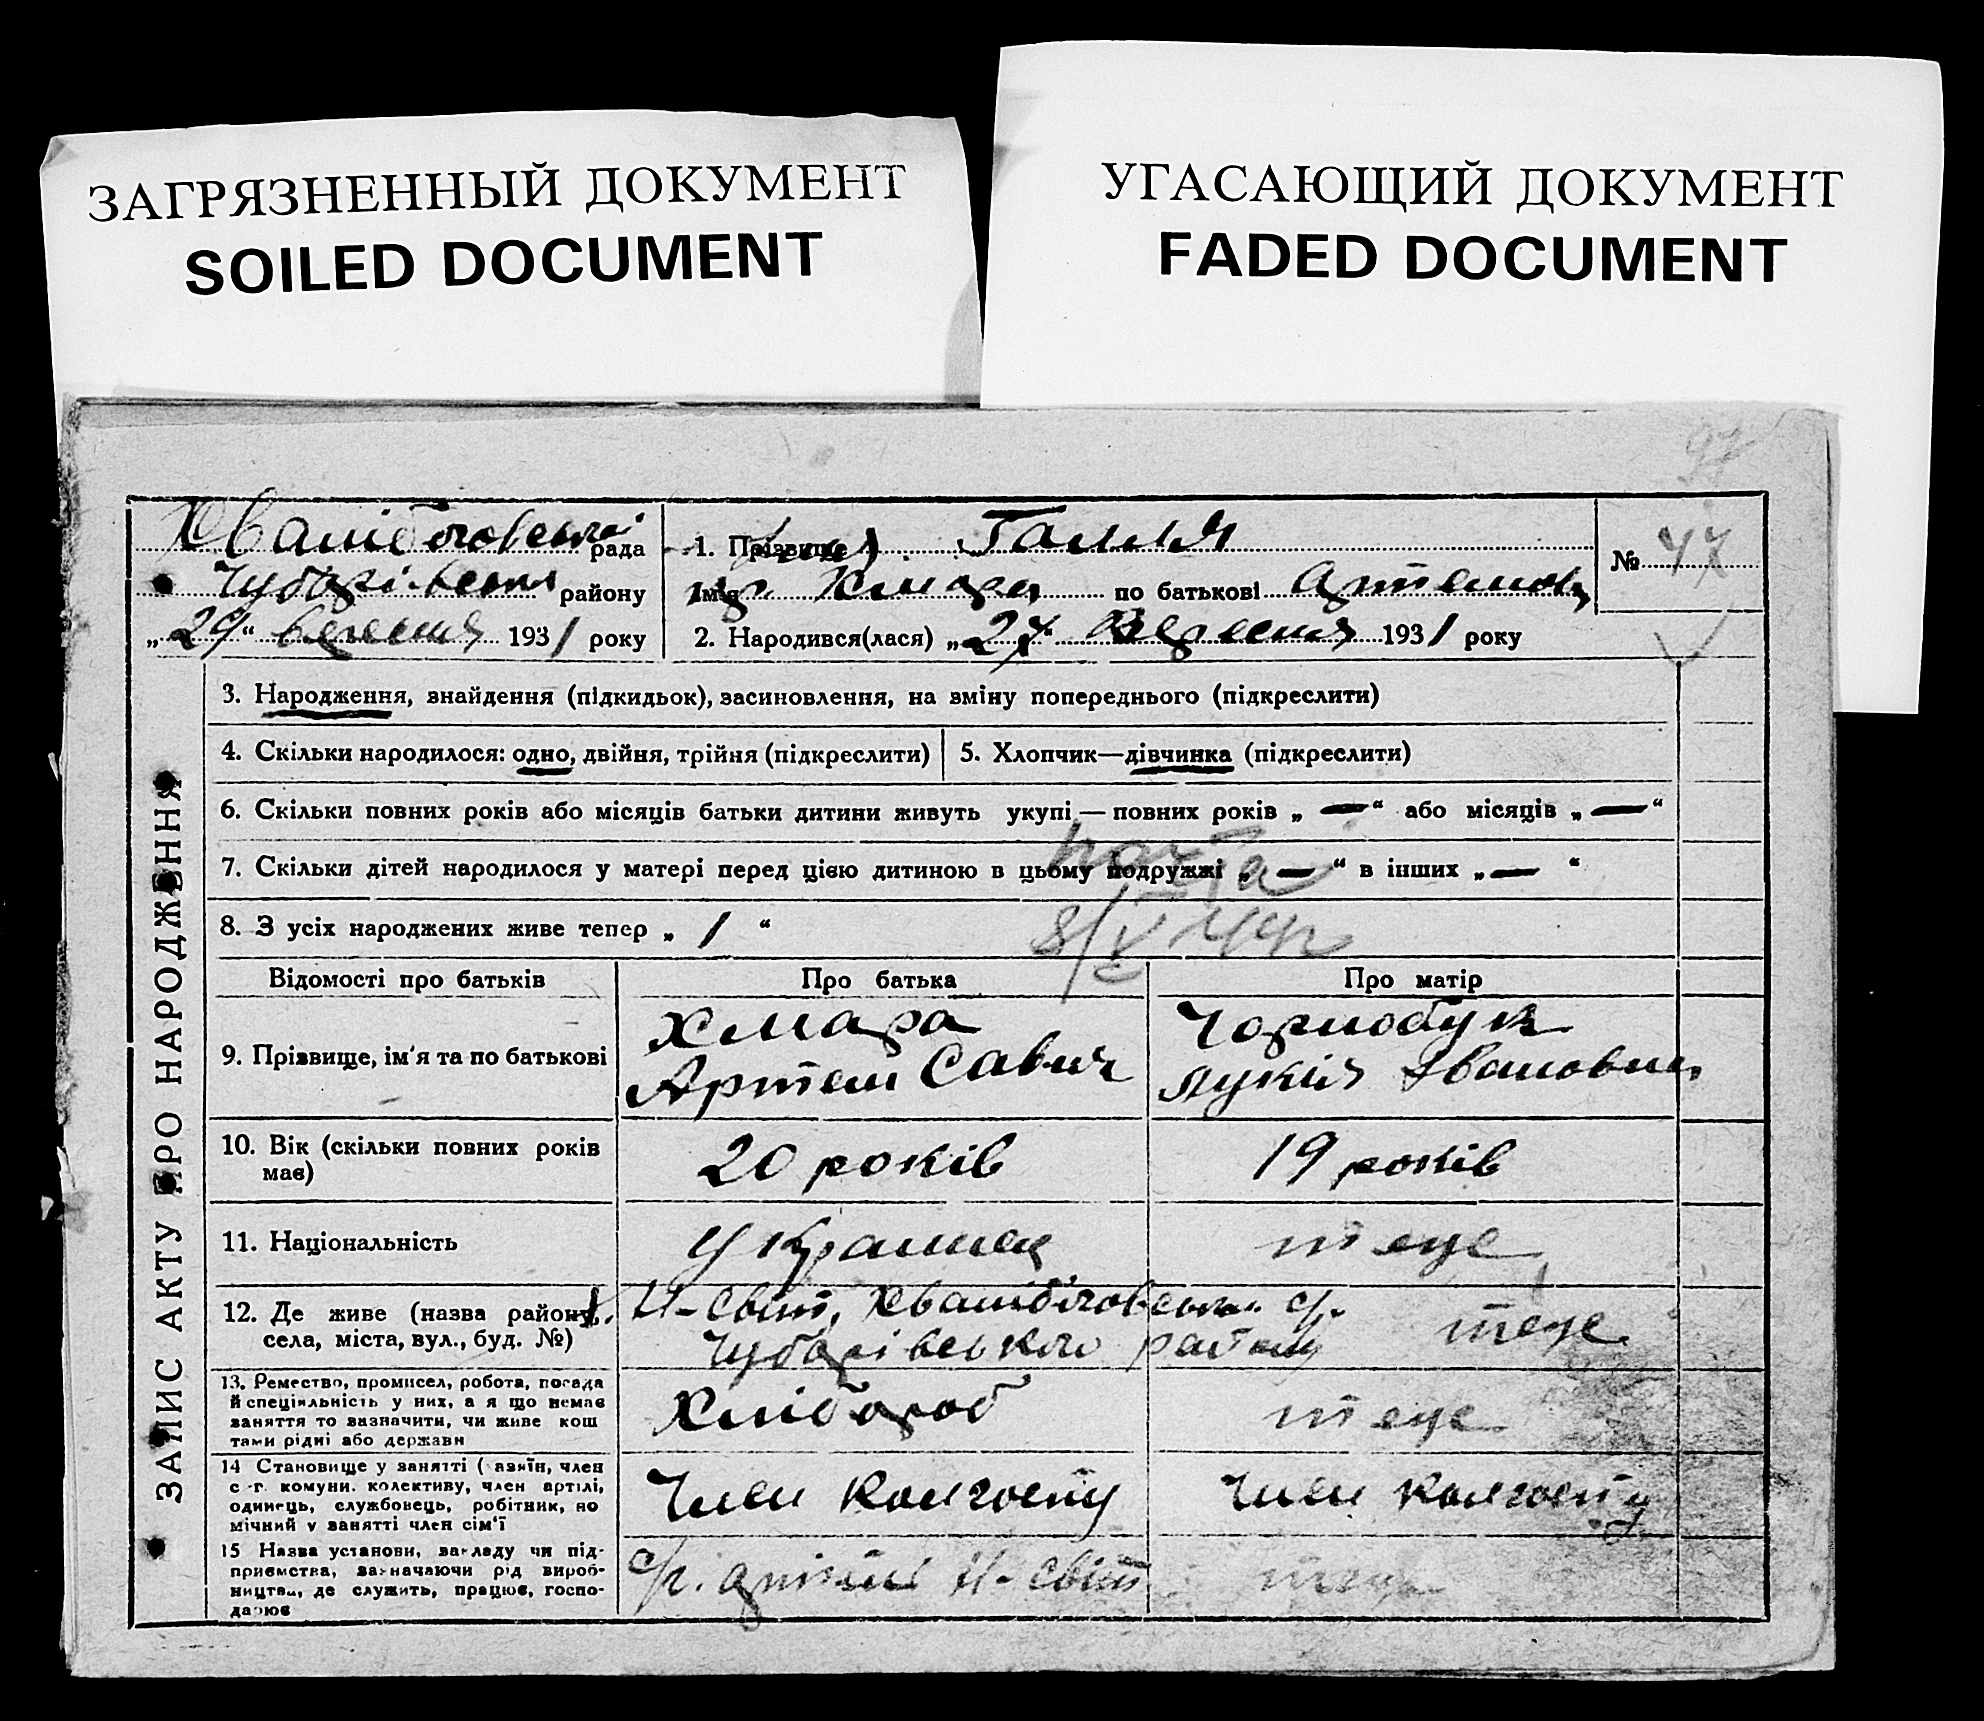 ЗАГРЯЗНЕННЫЙ ДОКУМЕНТ
SOILED DOCUMENT
УГАСАЮЩИЙ ДОКУМЕНТ
FADED DOCUMENT
97
рада
району
„29“ вересня 1931 року
1. Прізвище Галля
Ім'я Хмара по батькові Артемовн
2. Народився(лася) „27“ Вересня 1931 року
№ 47
ЗАПИС АКТУ ПРО НАРОДЖЕННЯ
3. Народження, знайдення (підкидьок), засиновлення, на зміну попереднього (підкреслити)
4. Скільки народилося: одно, двійня, трійня (підкреслити)
5. Хлопчик—дівчинка (підкреслити)
6. Скільки повних років або місяців батьки дитини живуть укупі — повних років „—“ або місяців „—“
7. Скільки дітей народилося у матері перед цією дитиною в цьому подружжі „—“ в інших „—“
8. З усіх народжених живе тепер „1“
Відомості про батьків
Про батька
Про матір
9. Прізвище, ім'я та по батькові
Хмара
Артем Савич
Чорнобук
Лукія Івановна
10. Вік (скільки повних років
має)
20 років
19 років
11. Національність
Українец
теже
12. Де живе (назва району,
села, міста, вул., буд. №)
Н-світ, с/р.
Чубарівського району
теже
13. Ремество, промисел, робота, посада
й спеціяльність у них, а я що немає
заняття то зазначити, чи живе кош
тами рідні або держави
Хлібороб
теже
14 Становище у занятті (хазяїн, член
с.-г. комуни, колективу, член артілі,
одинець, службовець, робітник, по
мічний у занятті член сім'ї
Член колгоспу
Член колгоспу
15 Назва установи, закладу чи під-
приємства, зазначаючи рід вироб-
ництва, де служить, працює, госпо-
дарює
с/г. артілі Н-світ
теже